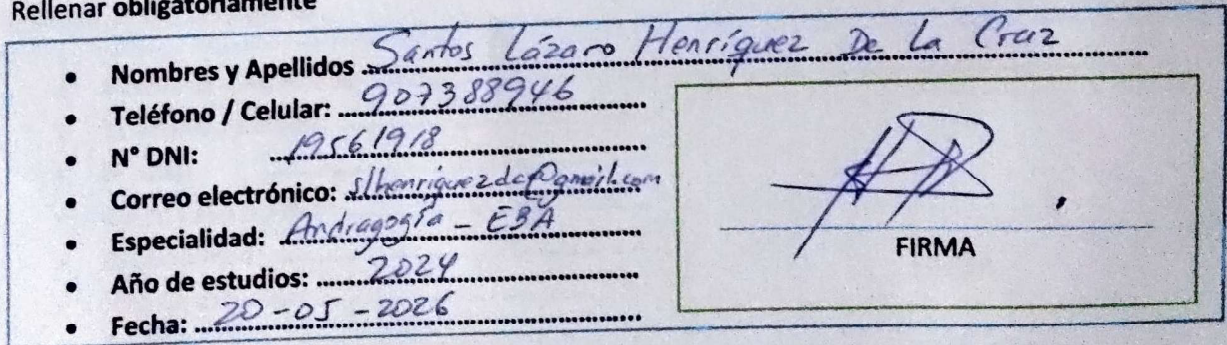 Rellenar obligatoriamente
• Nombres y Apellidos Santos Lázaro Henríquez De La Cruz
• Teléfono / Celular: 907388946
• N° DNI: 19561918
• Correo electrónico: slhenriquezdc@gmail.com
• Especialidad: Andragogía - EBA
• Año de estudios: 2024
• Fecha: 20-05-2026
FIRMA